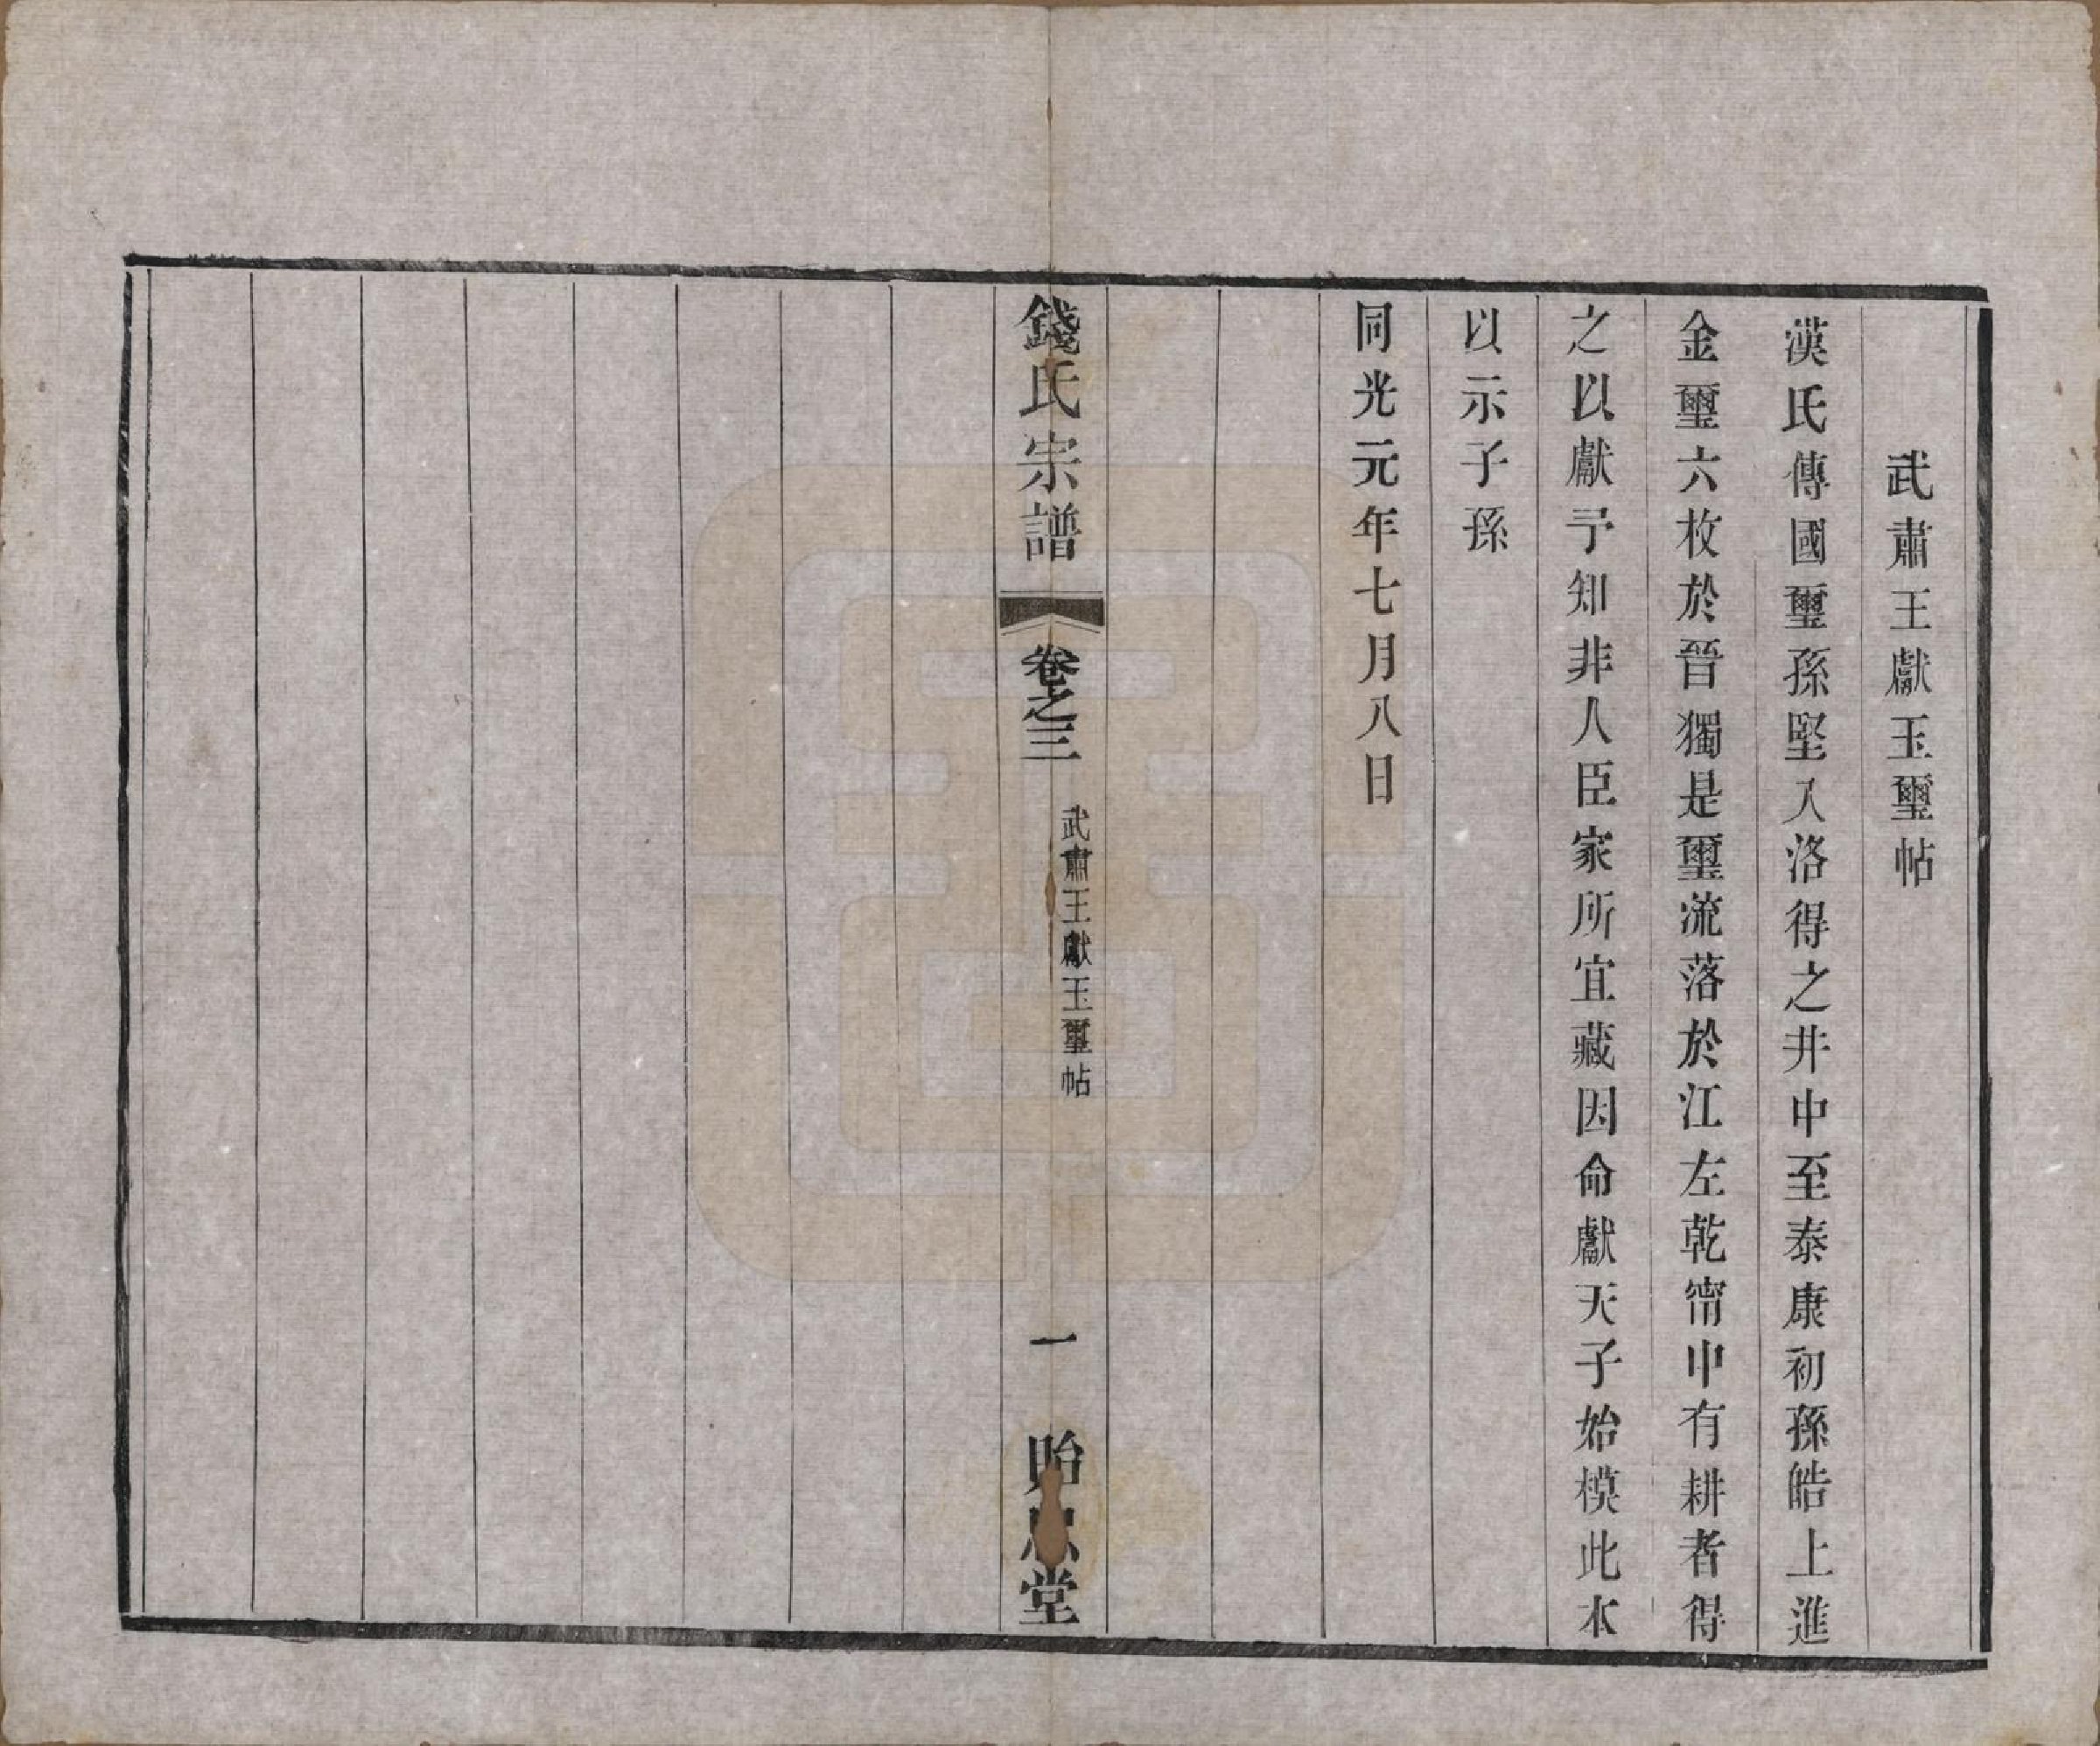 武肅王獻玉璽帖
漢氏傳國璽孫堅入洛得之井中至泰康初孫皓上進
金璽六枚於晉獨是璽流落於江左乾甯中有耕者得
之以獻予知非人臣家所宜藏因命獻天子始模此本
以示子孫
同光元年七月八日
錢氏宗譜
卷之三
武肅王獻玉璽帖
一
貽堂